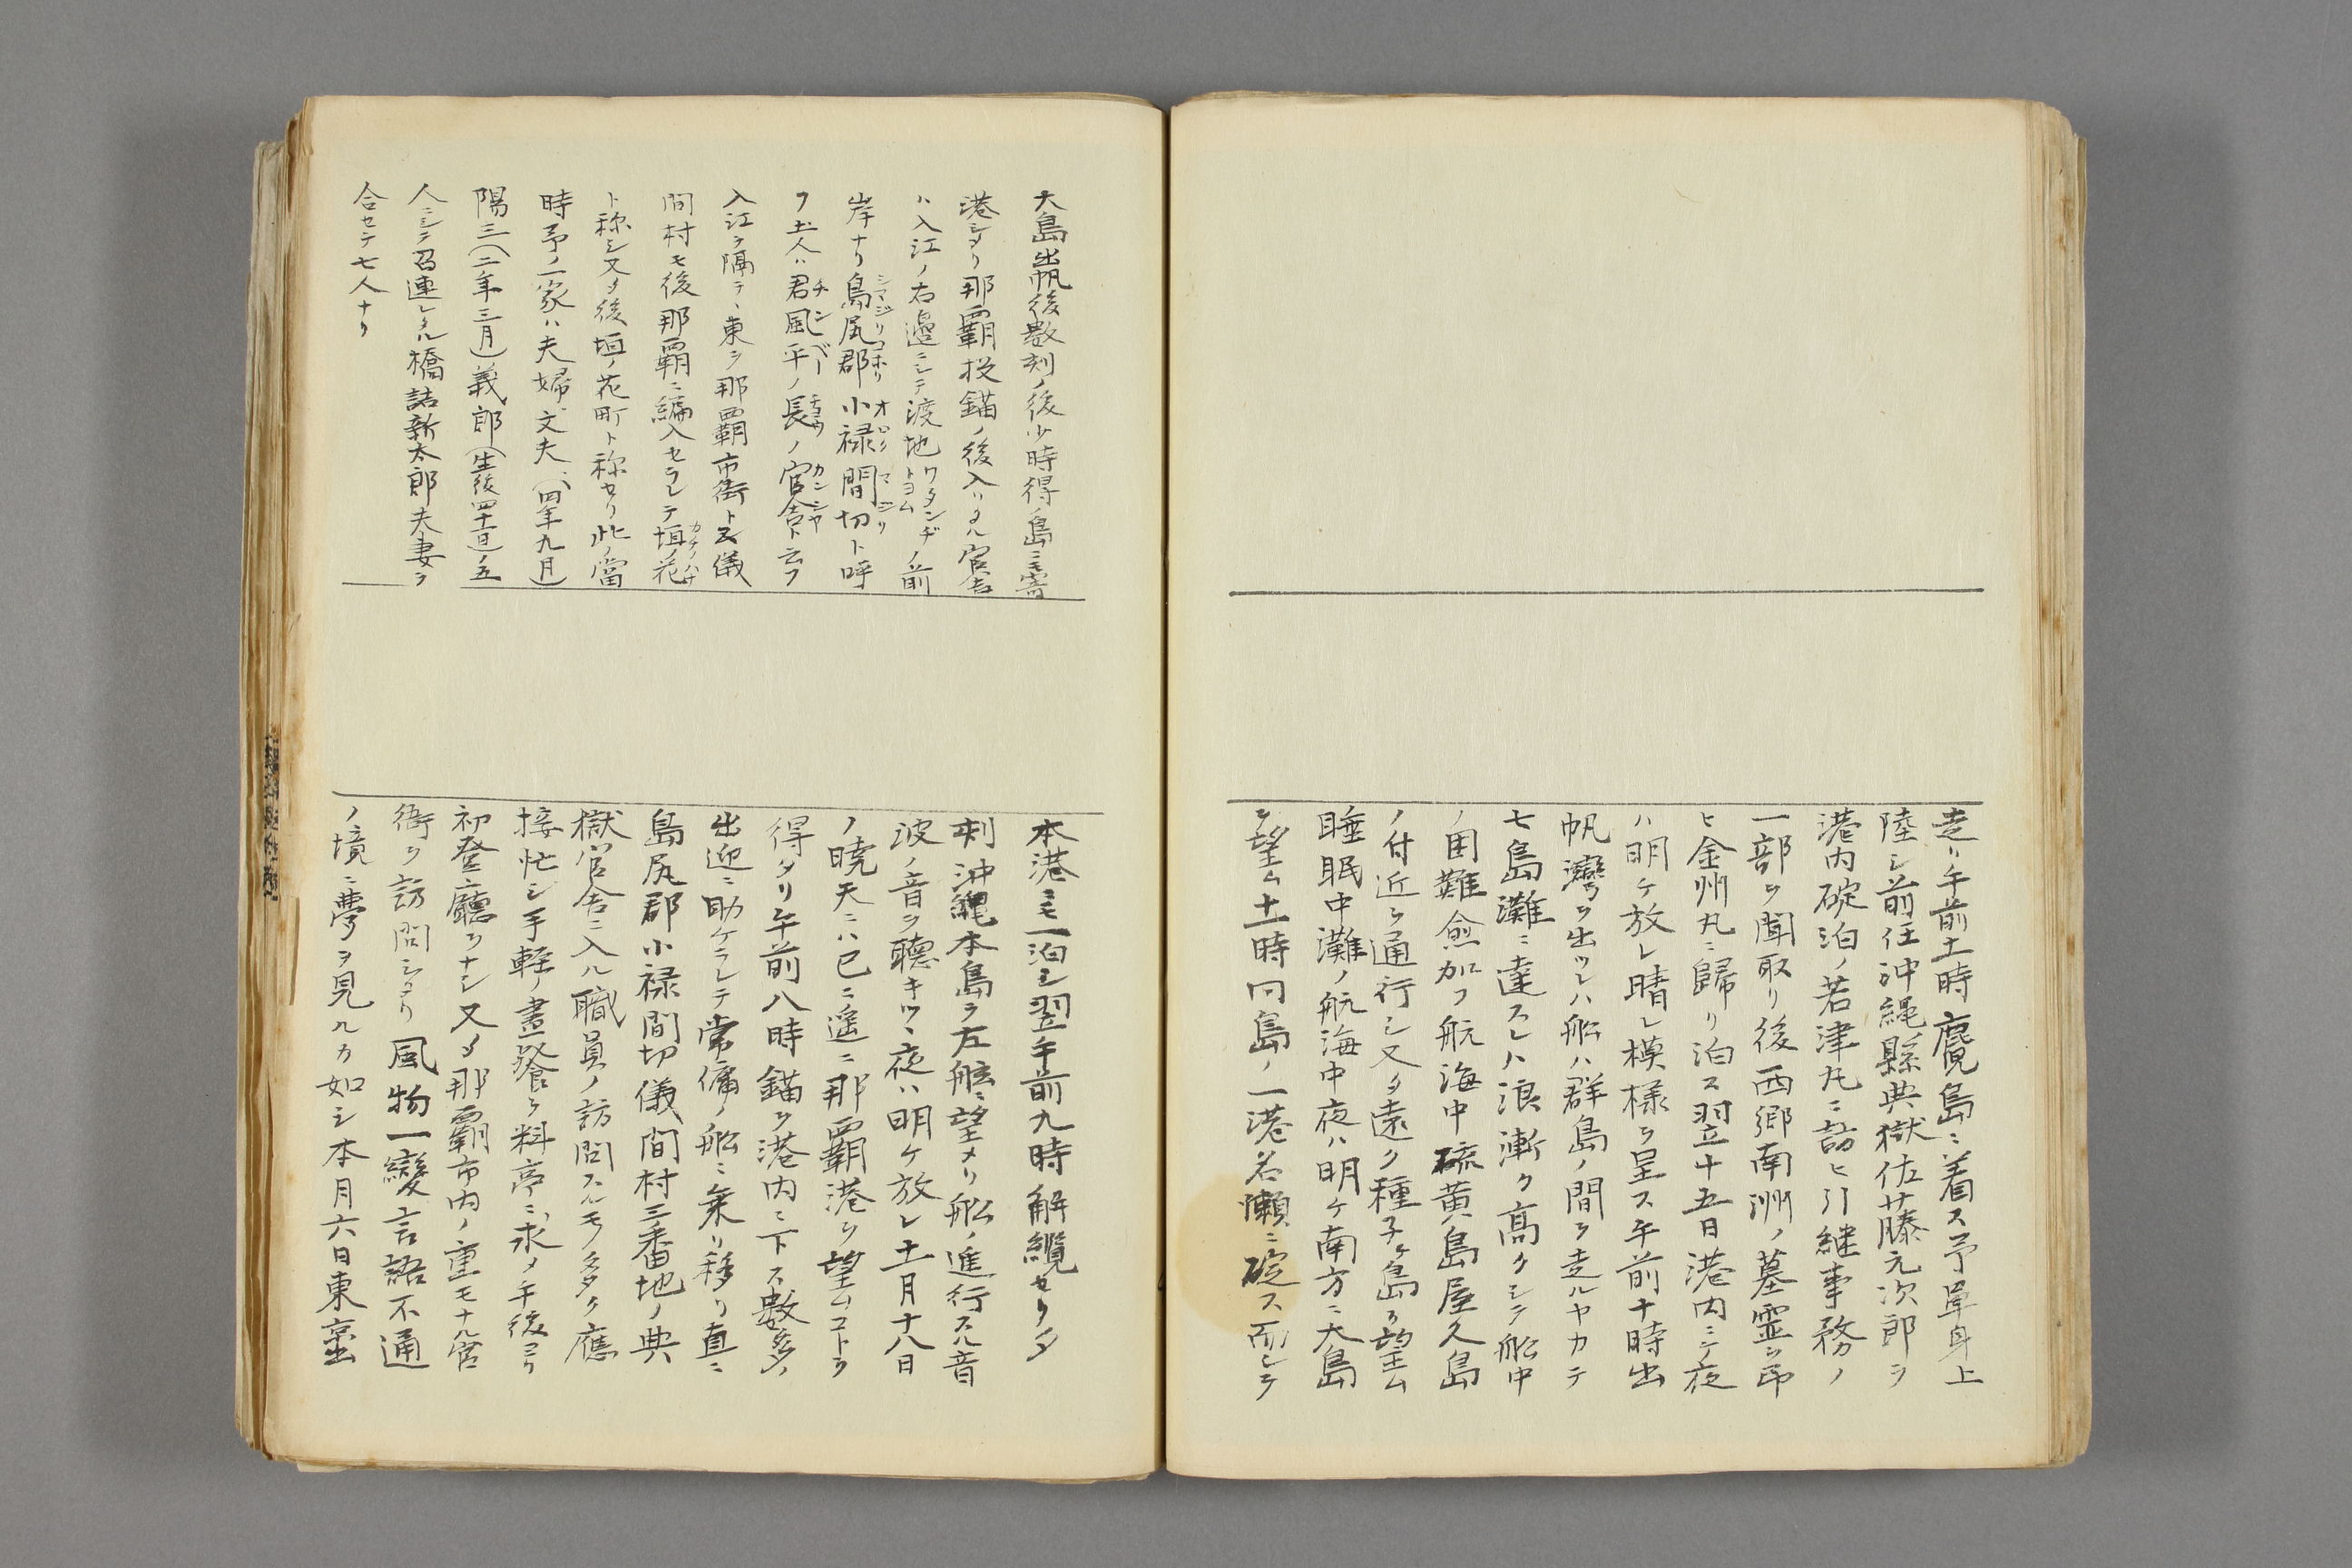 走リ午前十一時麑島ニ着ス予単身上
陸シ前任沖縄縣典獄佐藤元次郎ヲ
港内碇泊ノ若津丸ニ訪ヒ引継事務ノ
一部ヲ聞取リ後西郷南洲ノ墓霊ヲ弔
ヒ金州丸ニ歸リ泊ス翌十五日港内ニテ夜
ハ明ケ放レ晴レ模様ヲ呈ス午前十時出
帆灣ヲ出ツレハ船ハ群島ノ間ヲ走ルヤカテ
七島灘ニ達スレハ浪漸ク高クシテ船中
ノ困難愈加フ航海中硫黄島屋久島
ノ付近ヲ通行シ又タ遠ク種子ヶ島ヲ望ム
睡眠中灘ノ航海中夜ハ明ケ南方ニ大島
ヲ望ム十一時同島ノ一港名瀬ニ碇ス而シテ
大島出帆後数刻ノ後少時得ノ島ニモ寄
港シタリ那覇投錨ノ後入リタル官舎
ハ入江ノ右邉ニシテ渡地ワタンヂトヨムノ前
岸ナリ島尻郡シマジリコホリ小禄オロク間切マジリト呼
フ土人ハ君風平チンベーノ長チョウノ官舎カンシヤト云フ
入江ヲ隔テヽ東ヲ那覇市街ト云儀
間村モ後那覇ニ編入セラレテ垣ノ花カキノハナ
ト称シ又タ後垣ノ花町ト称セリ此ノ當
時予ノ一家ハ夫婦文夫(四年九月)
陽三(二年三月)義郎(生後四十一日)ノ五
人ニシテ召連レタル橋詰新太郎夫妻ヲ
合セテ七人ナリ
本港ニモ一泊シ翌午前九時解纜セリ夕
刻沖縄本島ヲ左舷ニ望メリ船ノ進行スル音
波ノ音ヲ聴キツヽ夜ハ明ケ放レ十一月十八日
ノ暁天ニハ已ニ遥ニ那覇港ヲ望ムコトヲ
得タリ午前八時錨ヲ港内ニ下ス数多ノ
出迎ニ助ケラレテ常傭ノ船ニ乗リ移リ直ニ
島尻郡小禄間切儀間村三番地ノ典
獄官舎ニ入ル職員ノ訪問スルモノ多ク應
接忙シ手軽ノ晝餐ヲ料亭ニ求メ午後ヨリ
初登廳ヲナシ又タ那覇市内ノ重モナル官
衙ヲ訪問シタリ風物一變言語不通
ノ境ニ夢ヲ見ルカ如シ本月六日東京出